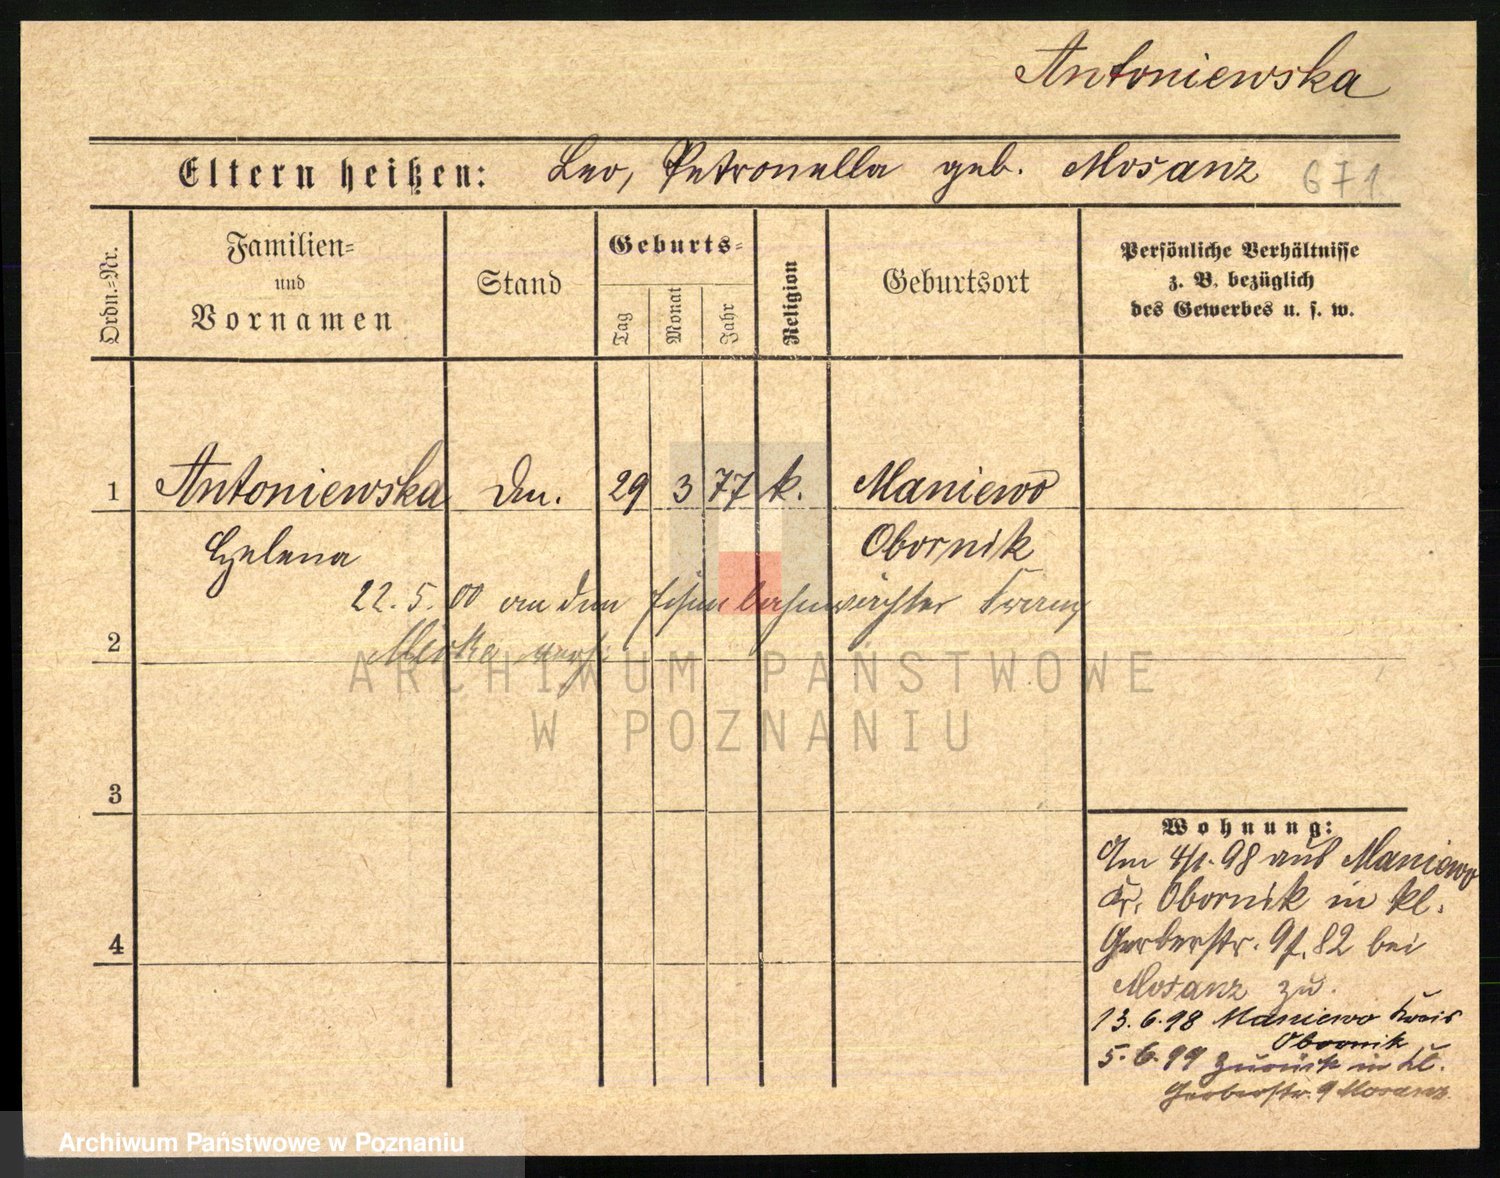 Antoniewska
Eltern heißen: Leo, Petronella geb. Mosanz 671
Ordn.-Nr.
Familien-
und
Vornamen
Stand
Geburts-
Tag
Monat
Jahr
Religion
Geburtsort
Persönliche Verhältnisse
z. B. bezüglich
des Gewerbes u. s. w.
1 Antoniewska 29 3 77 k. Maniewo
Helena Obornik
22. 5. 00 an den Eisenbahnwächter Franz
2
ARCHIWUM PAŃSTWOWE
W POZNANIU
3
Wohnung:
Am 4/1. 98 aus Maniewo
Kr. Obornik in kl.
4
Gerberstr. 9 82 bei
Mosanz zu.
13. 6. 98 Maniewo Kreis
Obornik
5. 6. 99 zurück in kl.
Gerberstr. 9 Mosanz
Archiwum Państwowe w Poznaniu